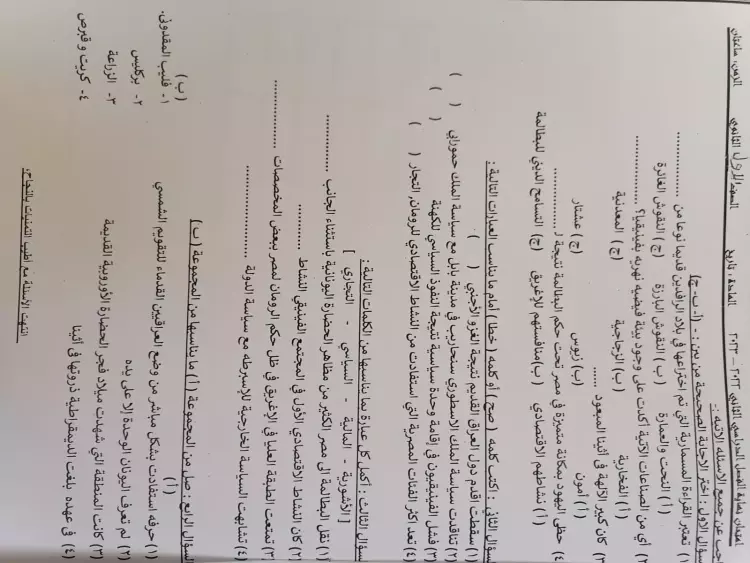 امتحان نهاية الفصل الدراسي الثاني ٢٠٢٢ - ٢٠٢٣ المادة : تاريخ الصف الأول الثانوي الزمن: ساعتان
أجب عن جميع الأسئلة الآتية :-
السؤال الأول : اختر الإجابة الصحيحة من بين : - ( أ - ب - ج )
١) تعتبر القراءة المسمارية التي تم اختراعها في بلاد الرافدين قديما نوعا من ................
( أ ) النحت والعمارة ( ب ) النقوش البارزة ( ج ) النقوش الغائرة
٢) أي من الصناعات الآتية أكدت على وجود بيئة فيضيه نهريه بفينيقيا؟ ................
( أ ) الفخارية ( ب ) الزجاجية ( ج ) المعدنية
٣) كان كبير الآلهة في أثينا المعبود ......
( أ ) آمون ( ب ) زيوس ( ج ) عشتار
٤) حظى اليهود بمكانة متميزة في مصر تحت حكم البطالمة نتيجة لـ ................
( أ ) نشاطهم الاقتصادي ( ب )منافستهم للإغريق ( ج) التسامح الديني للبطالمة
السؤال الثاني : اكتب كلمه ( صح ) أو كلمه ( خطا ) أمام ما يناسب لعبارات التالية :
١) سقطت اقدم دول العراق القديم نتيجة الغزو الأجنبي ( )
٢) تناقدت سياسة الملك الاسطوري سنحاريب في مدينة بابل مع سياسة الملك حمورابي ( )
٣) فشل الفينيقيون في إقامة وحدة سياسية نتيجة النفوذ السياسي للكهنة ( )
٤) تعد اكثر الفئات المصرية التي استفادت من النشاط الاقتصادي للرومان, التجار ( )
السؤال الثالث : أكمل كل عبارة بما يناسبها من الكلمات التالية :
[ الأشورية - المالية - السياسي - التجاري ]
١) نقل البطالمة الى مصر الكثير من مظاهر الحضارة اليونانية باستثناء الجانب ................
٢) كان النشاط الاقتصادي الأول في المجتمع الفينيقي النشاط ................
٣) تمتعت الطبقة العليا في الإغريق في ظل حكم الرومان لمصر ببعض المخصصات ................
٤) تشابهت السياسة الخارجية للإسبرطه مع سياسة الدولة ................
السؤال الرابع : صل من المجموعة ( أ ) ما يناسبها من المجموعة ( ب )
( أ ) ( ب )
(١) حرفه استفادت بشكل مباشر من وضع العراقيين القدماء للتقويم الشمسي ١- فليب المقدونى.
(٢) لم تعرف اليونان الوحدة إلا على يده ٢- بركليس
(٣) كانت المنطقة التي شهدت ميلاد فجر الحضارة الأوروبية القديمة ٣- الزراعة
(٤) في عهده بلغت الديمقراطية ذروتها فى أثينا ٤- كريت و قبرص
انتهت الأسئلة مع أطيب التمنيات بالنجاح,